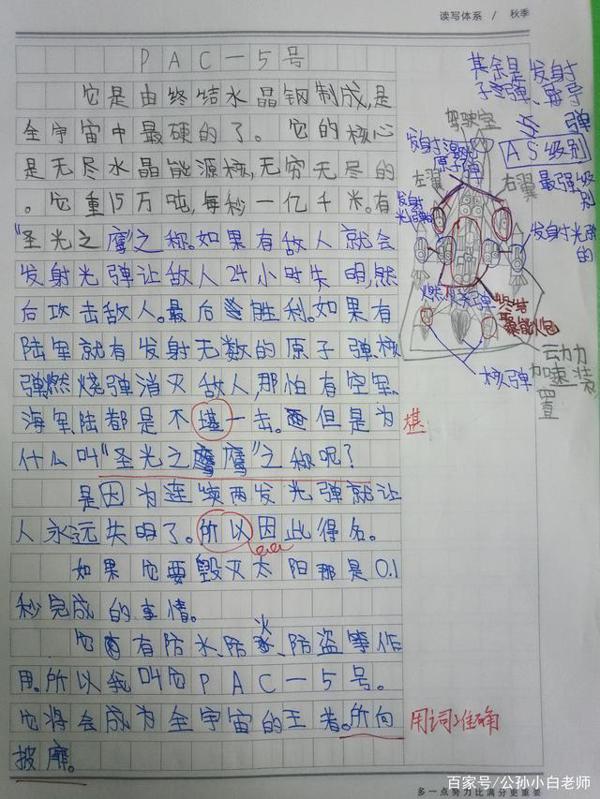 读写体系 / 秋季
PAC—5号
它是由终结水晶钢制成,是
全宇宙中最硬的了。它的核心
是无尽水晶能源核,无穷无尽的
。它重15万吨,每秒一亿千米。有
“圣光之鹰”之称。如果有敌人就会
发射光弹让敌人24小时失明,然
后攻击敌人。最后胜利。如果有
陆军就有发射无数的原子弹核
弹燃烧弹消灭敌人,那怕有空军、
海军、陆都是不堪一击。但是为
什么叫“圣光之鹰”之称呢?
是因为连续两发光弹就让
人永远失明了。所以因此得名。
如果它要毁灭太阳那是0.1
秒完成的事情。
它有防水、防火、防盗等作
用。所以我叫它PAC—5号。
它将会成为全宇宙的王者。所向
披靡。
其余是发射
子弹、导
弹
驾驶室
AS级别
最强级
别
左翼
右翼
发射
原子弹
发射
光弹
发射光弹
的
燃烧弹
核弹
动力
加速装
置
用词准确
多一点努力比满分更重要
百家号/公孙小白老师